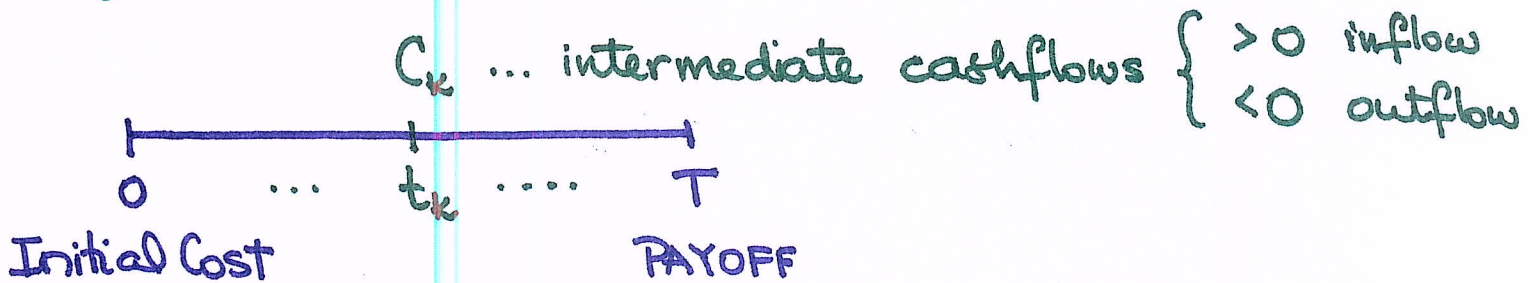 C_k ... intermediate cashflows { > 0 inflow
< 0 outflow
0 ... t_k .... T
Initial Cost PAYOFF